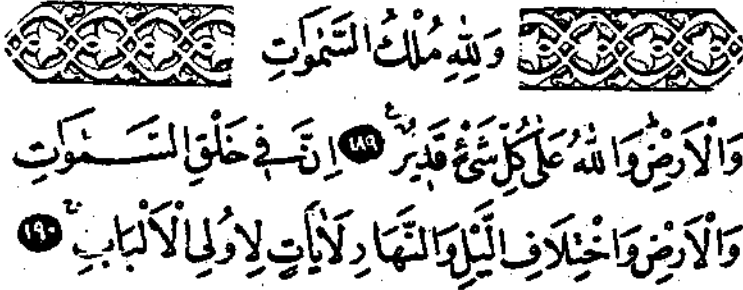 وَلِلّٰهِ مُلْكُ السَّمٰوَاتِ
وَالْاَرْضِؕ وَاللّٰهُ عَلٰى كُلِّ شَیْءٍ قَدِیْرٌ ﴿١٨٩﴾ اِنَّ فِیْ خَلْقِ السَّمٰوَاتِ
وَالْاَرْضِ وَاخْتِلَافِ الَّیْلِ وَالنَّهَارِ لَاٰیَاتٍ لِاُولِی الْاَلْبَابِ ﴿١٩٠﴾